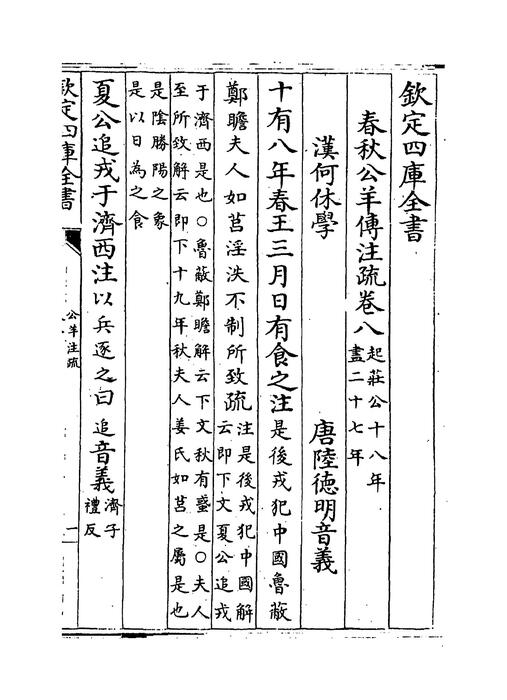 欽定四庫全書
春秋公羊傳注疏卷八起莊公十八年
盡二十七年
漢何休學　唐陸德明音義
十有八年春王三月日有食之注是後戎犯中國魯蔽
鄭瞻夫人如莒淫泆不制所致疏注是後戎犯中國解
云即下文夏公追戎
于濟西是也○魯蔽鄭瞻解云下文秋有䘌是○夫人
至所致解云即下十九年秋夫人姜氏如莒之屬是也
是陰勝陽之象
是以日為之食
夏公追戎于濟西注以兵逐之曰追音義濟子
禮反
欽定四庫全書
公羊注疏
一